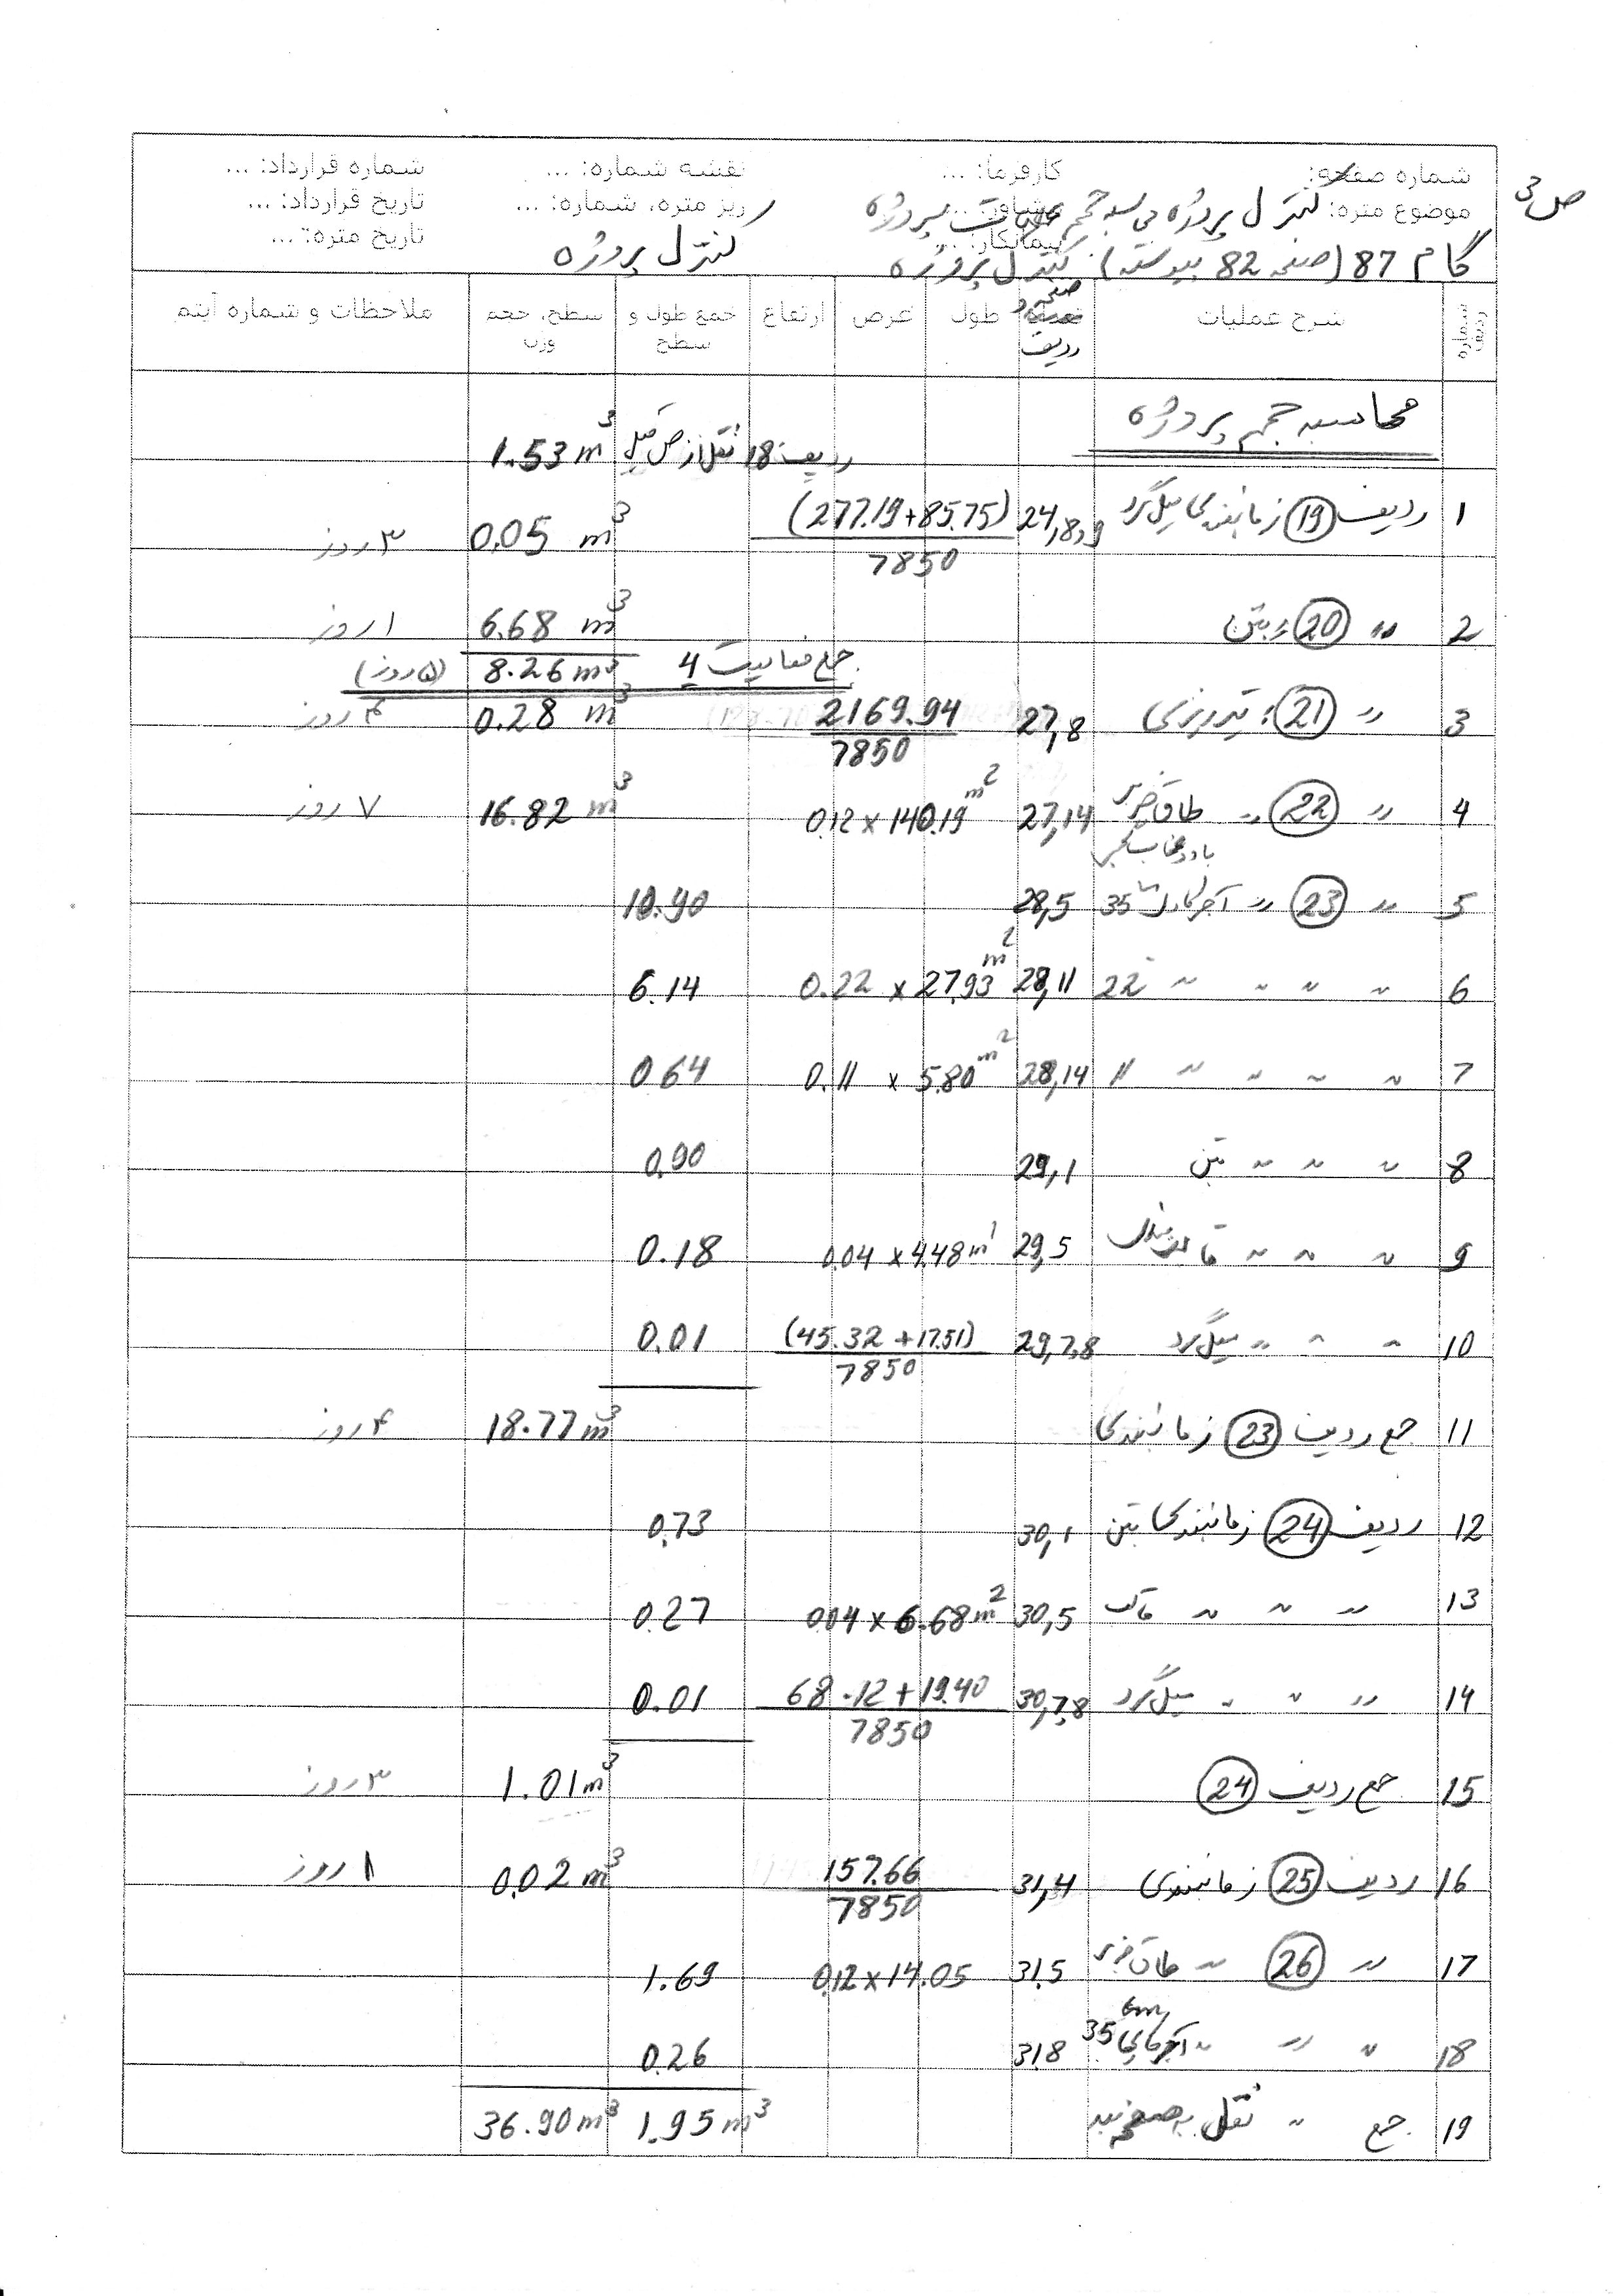 ص 3
شماره صفحه: کارفرما: ... نقشه شماره: ... شماره قرارداد: ...
موضوع متره: کنترل پروژه محاسبه حجم عملیات پروژه مشاور: ... ریز متره، شماره: ... تاریخ قرارداد: ...
پیمانکار: ... تاریخ متره: ...
گام 87 (صفحه 82 پیوسته) کنترل پروژه کنترل پروژه
شماره ردیف شرح عملیات صفحه و ردیف طول عرض ارتفاع جمع طول و سطح سطح، حجم وزن ملاحظات و شماره آیتم
محاسبه حجم پروژه
ردیف 18 نقل از ص قبل 1.53 m³
1 ردیف (19) زمانبندی میلگرد 24,8,9 (277.19+85.75) / 7850 0.05 m³ ۳ روز
2 〃 (20) 〃 بتن 6.68 m³ ۱ روز
جمع فعالیت 4 8.26 m³ (۵ روز)
3 〃 (21) : تیرریزی 27,8 2169.94 / 7850 0.28 m³ ۴ روز
4 〃 (22) 〃 طاق ضربی 27,14 0.12 × 140.19 m² 16.82 m³ ۷ روز
5 〃 (23) 〃 آجرکاری 35 28,5 10.90
6 〃 〃 〃 〃 22 28,11 0.22 × 27.93 m² 6.14
7 〃 〃 〃 〃 11 28,14 0.11 × 5.80 m² 0.64
8 〃 〃 〃 بتن 29,1 0.90
9 〃 〃 〃 29,5 0.04 × 4.48 m² 0.18
10 〃 〃 〃 میلگرد 29,7,8 (45.32 + 17.51) / 7850 0.01
11 جمع ردیف (23) زمانبندی 18.77 m³ ۴ روز
12 ردیف (24) زمانبندی بتن 30,1 0.73
13 〃 〃 〃 قالب 30,5 0.04 × 6.68 m² 0.27
14 〃 〃 〃 میلگرد 30,7,8 68.12 + 19.40 / 7850 0.01
15 جمع ردیف (24) 1.01 m³ ۳ روز
16 ردیف (25) زمانبندی 31,4 157.66 / 7850 0.02 m³ ۱ روز
17 〃 (26) 〃 طاق ضربی 31,5 0.12 × 14.05 1.69
18 〃 〃 〃 آجرکاری 35 cm 31,8 0.26
19 جمع 〃 نقل به صفحه بعد 1.95 m³ 36.90 m³